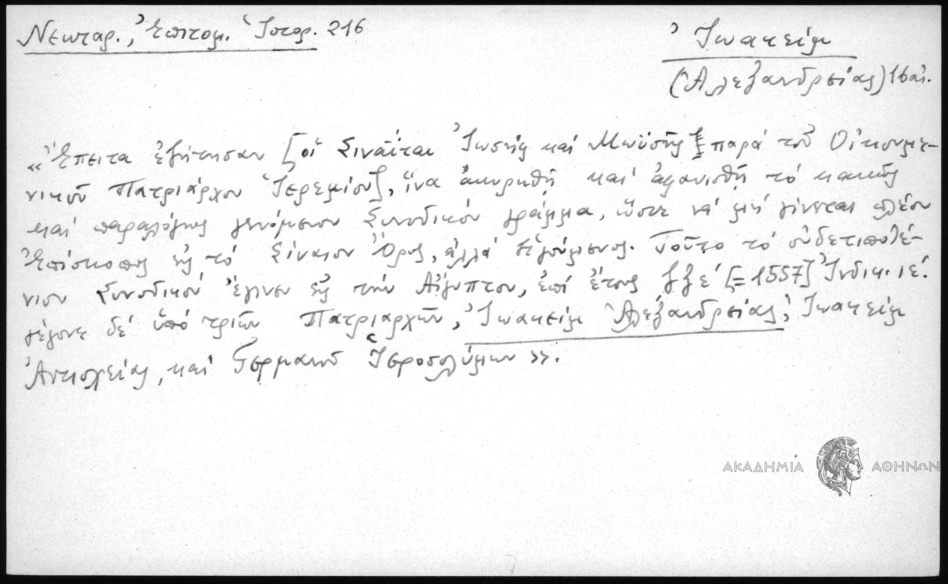 Νεκταρ., Ἐπιτομ. Ἱστορ. 216
Ἰωακεὶμ
(Ἀλεξανδρείας) 16 αἰ.
«Ἔπειτα ἐζήτησαν [οἱ Σιναῖται Ἰωσὴφ καὶ Μωϋσῆς] παρὰ τοῦ Οἰκουμε-
νικοῦ Πατριάρχου Ἱερεμίου, ἵνα ἀκυρωθῇ καὶ ἀφανισθῇ τὸ κακῶς
καὶ παραλόγως γενόμενον Συνοδικὸν γράμμα, ὥστε νὰ μὴ γίνεται πλέον
Ἐπίσκοπος εἰς τὸ Σίναιον Ὄρος, ἀλλὰ Ἡγούμενος. Τοῦτο τὸ
Συνοδικὸν ἔγινεν εἰς τὴν Αἴγυπτον, ἐπὶ ἔτους ζξε΄ [= 1557] Ἰνδικ. ιε΄.
γέγονε δὲ ὑπὸ τριῶν Πατριαρχῶν, Ἰωακεὶμ Ἀλεξανδρείας, Ἰωακεὶμ
Ἀντιοχείας, καὶ Γερμανοῦ Ἱεροσολύμων».
ΑΚΑΔΗΜΙΑ ΑΘΗΝΩΝ